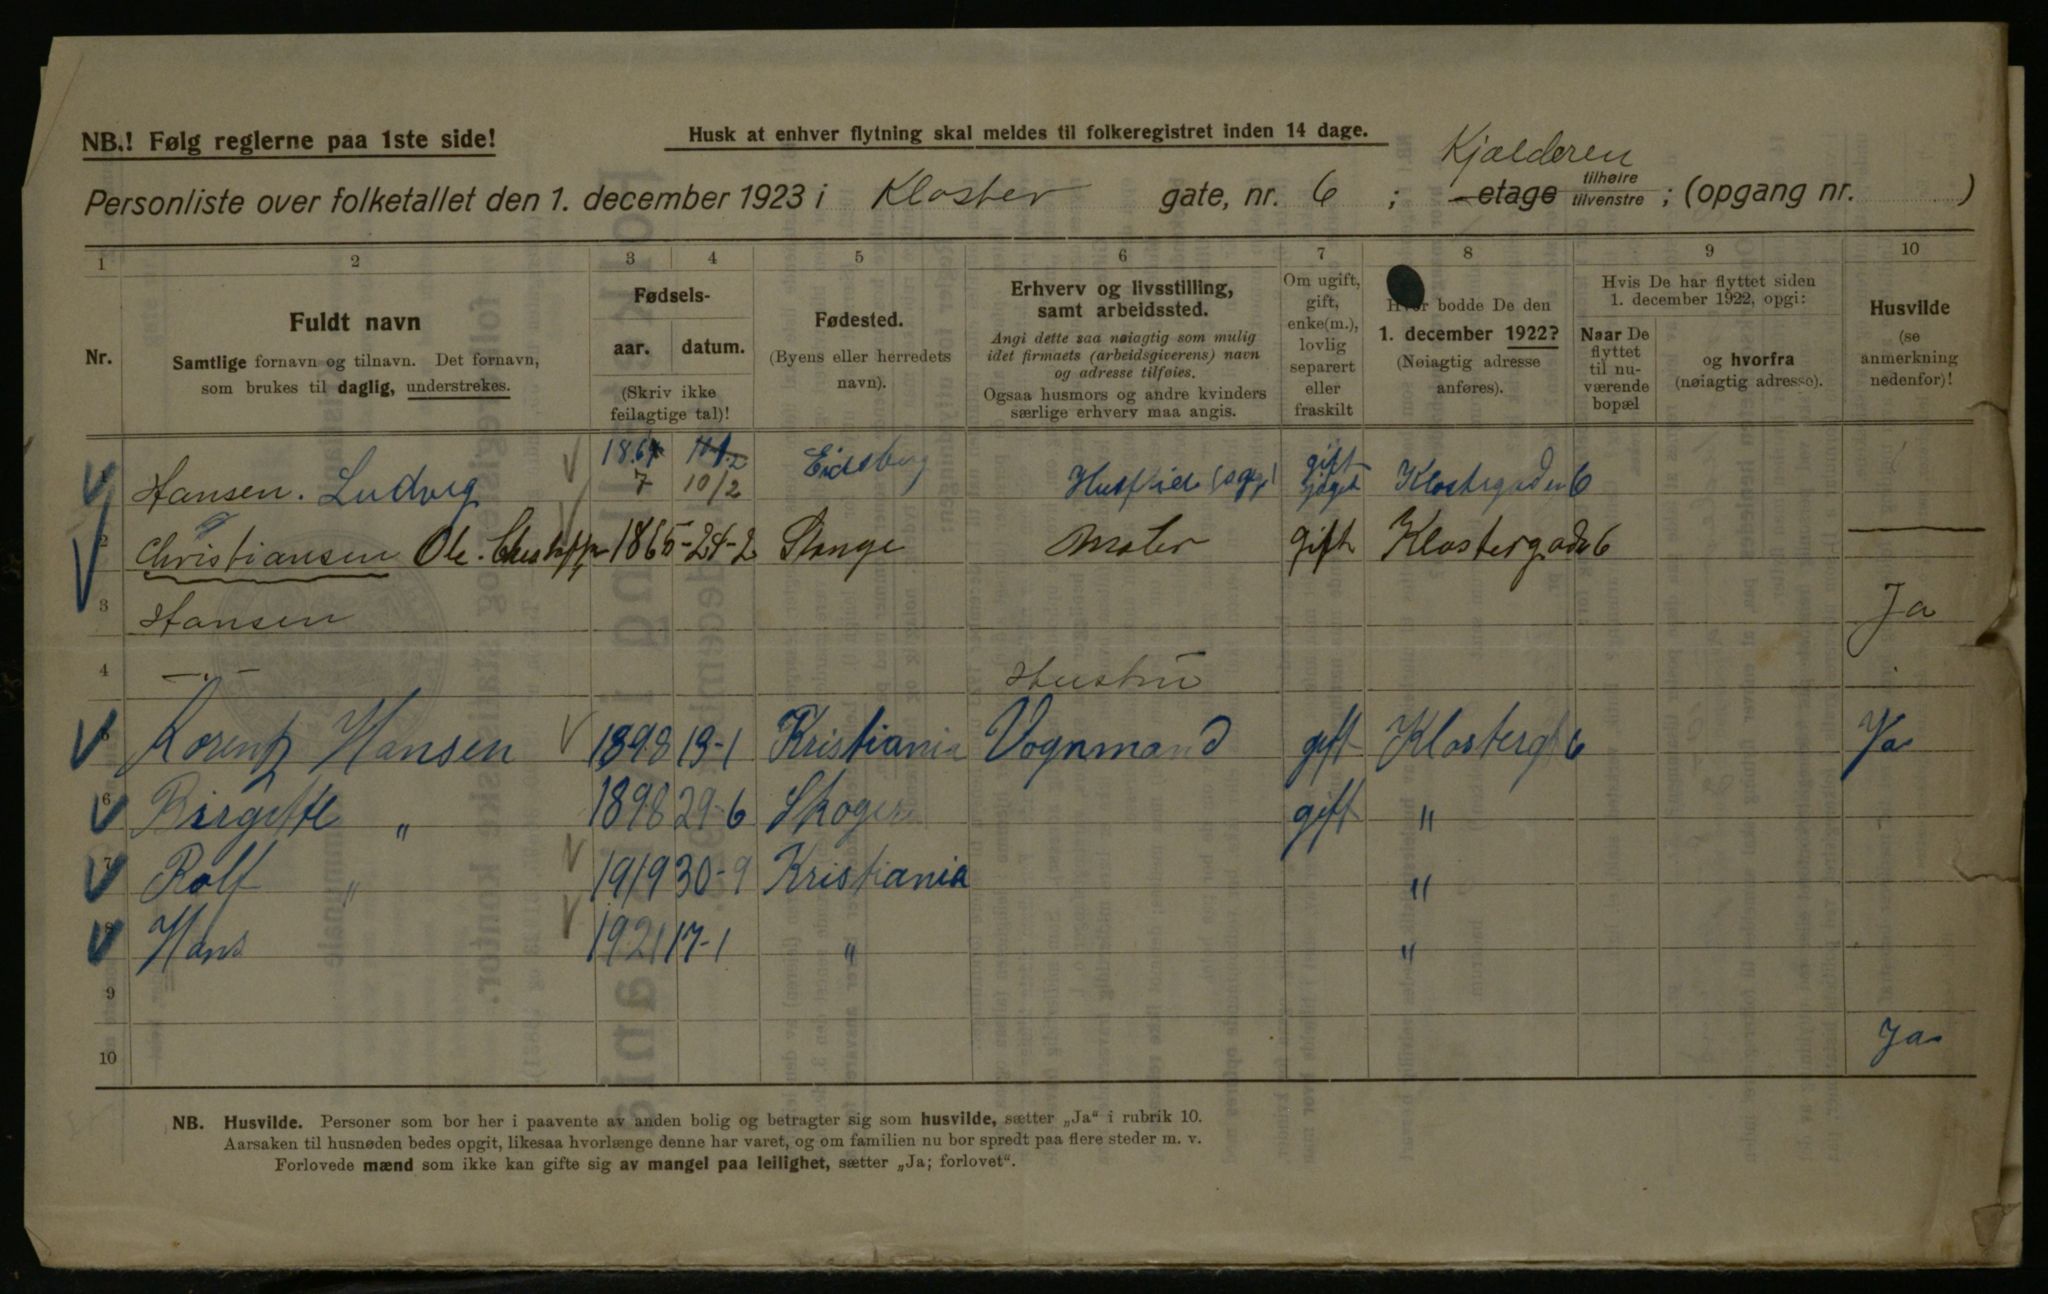 NB.! Følg reglerne paa 1ste side!
Husk at enhver flytning skal meldes til folkeregistret inden 14 dage.
Kjælderen
Personliste over folketallet den 1. december 1923 i Kloster gate, nr. 6 ; etage tilhøire tilvenstre ; (opgang nr. )
1 2 3 4 5 6 7 8 9 10
Nr.
Fuldt navn
Samtlige fornavn og tilnavn. Det fornavn,
som brukes til daglig, understrekes.
Fødsels-
aar. datum.
(Skriv ikke
feilagtige tal)!
Fødested.
(Byens eller herredets
navn).
Erhverv og livsstilling,
samt arbeidssted.
Angi dette saa nøiagtig som mulig
idet firmaets (arbeidsgiverens) navn
og adresse tilføies.
Ogsaa husmors og andre kvinders
særlige erhverv maa angis.
Om ugift,
gift,
enke(m.),
lovlig
separert
eller
fraskilt
Hvor bodde De den
1. december 1922?
(Nøiagtig adresse
anføres).
Hvis De har flyttet siden
1. december 1922, opgi:
Naar De
flyttet
til nu-
værende
bopæl
og hvorfra
(nøiagtig adresse).
Husvilde
(se
anmerkning
nedenfor)!
Hansen. Ludvig 1864 7 10/2 Eidsberg gift Klostergaden 6
2 Christiansen Ole. 1865-24-2 Stange Maler gift Klostergade 6
3 Hansen Ja
4 —"— Hustru
5 Lorentz Hansen 1898 13-1 Kristiania Vognmand gift Klostergt 6 Ja
6 Birgitte " 1898 29-6 Skoger gift "
7 Rolf " 1919 30-9 Kristiania "
8 Hans 1921 17-1 " "
9
10 Ja
NB. Husvilde. Personer som bor her i paavente av anden bolig og betragter sig som husvilde, sætter „Ja“ i rubrik 10.
Aarsaken til husnøden bedes opgit, likesaa hvorlænge denne har varet, og om familien nu bor spredt paa flere steder m. v.
Forlovede mænd som ikke kan gifte sig av mangel paa leilighet, sætter „Ja; forlovet“.